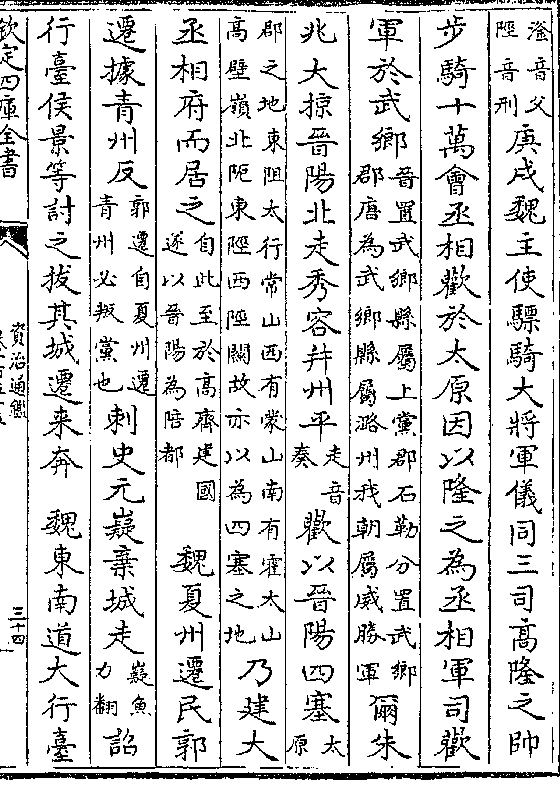 滏音父陘音刑庚戌魏主使驃騎大將軍儀同三司高隆之帥
步騎十萬會丞相歡於太原因以隆之為丞相軍司歡
軍於武鄉晉置武鄉縣屬上黨郡石勒分置武鄉郡唐為武鄉縣屬潞州我朝屬威勝軍爾朱
兆大掠晉陽北走秀容幷州平走音奏歡以晉陽四塞太原
郡之地東阻太行常山西有蒙山南有霍太山高壁嶺北阨東陘西陘關故亦以為四塞之地乃建大
丞相府而居之自此至於高齊建國遂以晉陽為陪都 魏夏州遷民郭
遷據青州反郭遷自夏州遷青州必叛黨也刺史元嶷棄城走嶷魚力翻詔
行臺侯景等討之拔其城遷来奔 魏東南道大行臺
欽定四庫全書
資治通鑑
三十四